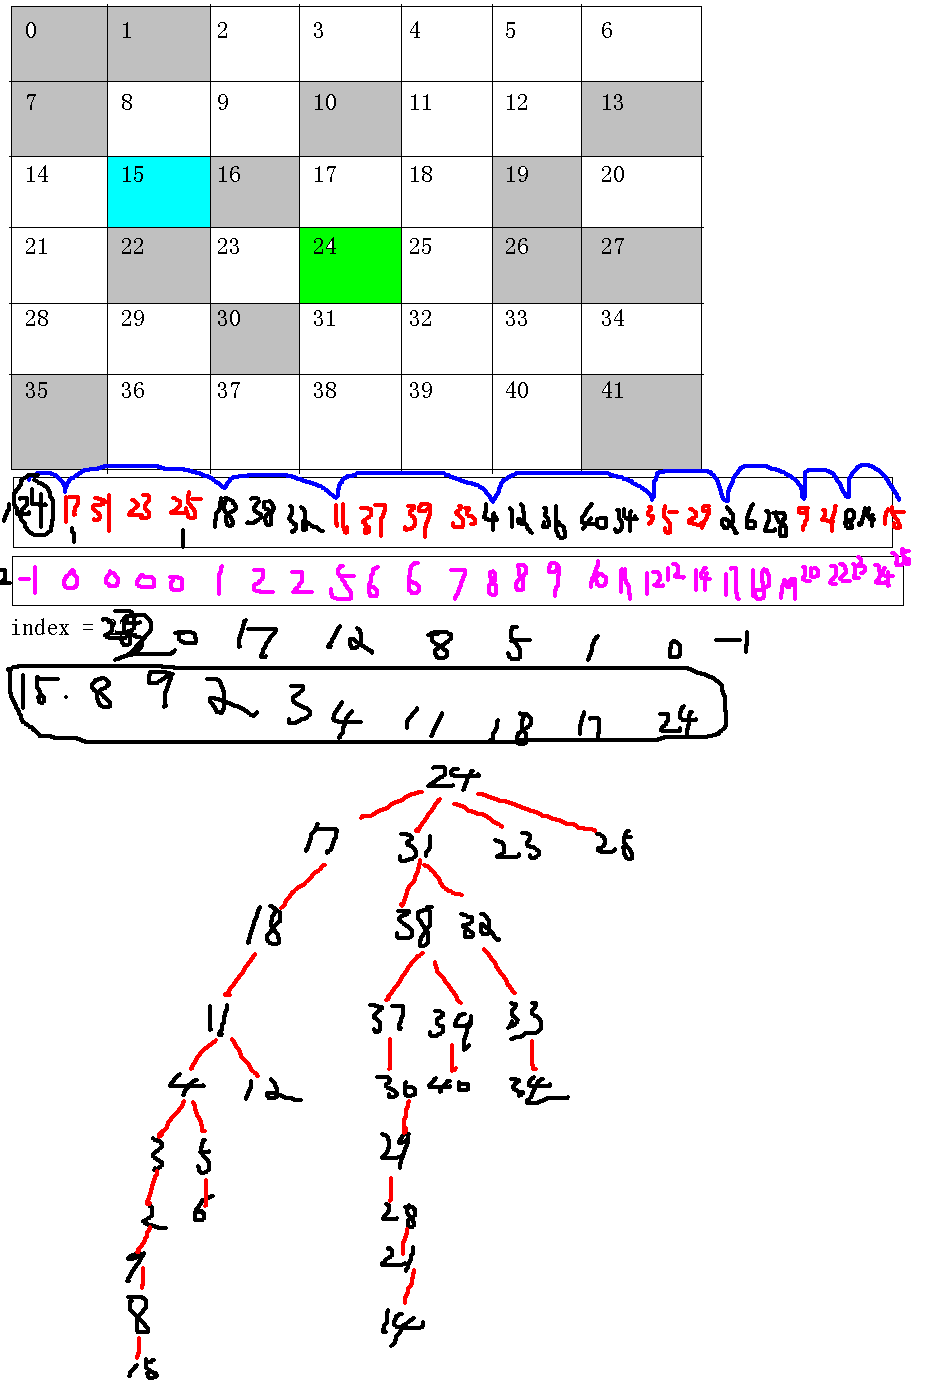 0 1 2 3 4 5 6
7 8 9 10 11 12 13
14 15 16 17 18 19 20
21 22 23 24 25 26 27
28 29 30 31 32 33 34
35 36 37 38 39 40 41
24 17 31 23 25 18 38 32 11 37 39 33 4 12 36 40 34 3 5 29 2 6 28 9 21 8 14 15
1 1
-1 0 0 0 0 1 2 2 5 6 6 7 8 8 9 10 11 12 12 14 17 18 19 20 22 23 24 25
index = 0 17 12 8 5 1 0 -1
15. 8 9 2 3 4 11 18 17 24
24
17 31 23 25
18 38 32
11 37 39 33
4 12 36 40 34
3 5 29
2 6 28
9 21
8 14
15